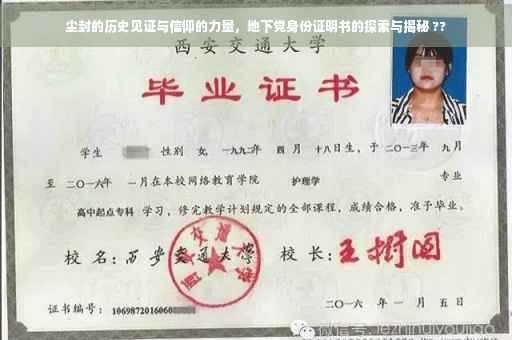 尘封的历史见证与信仰的力量，地下党身份证明书的探索与揭秘 ??
西安交通大学
毕业证书
学生 性别 女, 一九九二年 四月 十八日生，于 二〇一三年 九月
至 二〇一六年 一月在本校网络教育学院 护理学 专业
高中起点专科 学习，修完教学计划规定的全部课程，成绩合格，准予毕业。
校名：西安交通大学 校长：王树国
西安交通大学
证书编号：1069872016060 二〇一六年 一月 五日
微信号: jezhinuiyoujiao